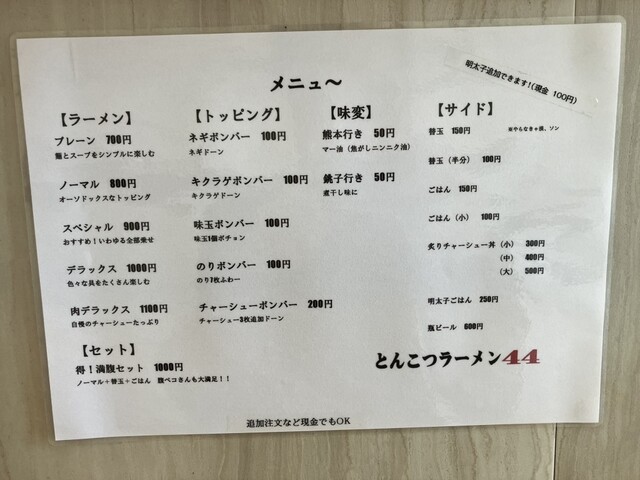 メニュ～
明太子追加できます！(現金 100円)
【ラーメン】
プレーン 700円
麺とスープをシンプルに楽しむ
ノーマル 800円
オーソドックスなトッピング
スペシャル 900円
おすすめ！いわゆる全部乗せ
デラックス 1000円
色々な具をたくさん楽しむ
肉デラックス 1100円
自慢のチャーシューたっぷり
【セット】
得！満腹セット 1000円
ノーマル＋替玉＋ごはん 腹ペコさんも大満足！！
【トッピング】
ネギボンバー 100円
ネギドーン
キクラゲボンバー 100円
キクラゲドーン
味玉ボンバー 100円
味玉1個ポチョン
のりボンバー 100円
のり7枚ふわー
チャーシューボンバー 200円
チャーシュー3枚追加ドーン
【味変】
熊本行き 50円
マー油（焦がしニンニク油）
銚子行き 50円
煮干し味に
【サイド】
替玉 150円 ※やらなきゃ損、ソン
替玉（半分） 100円
ごはん 150円
ごはん（小） 100円
炙りチャーシュー丼（小） 300円
（中） 400円
（大） 500円
明太子ごはん 250円
瓶ビール 600円
とんこつラーメン44
追加注文など現金でもOK